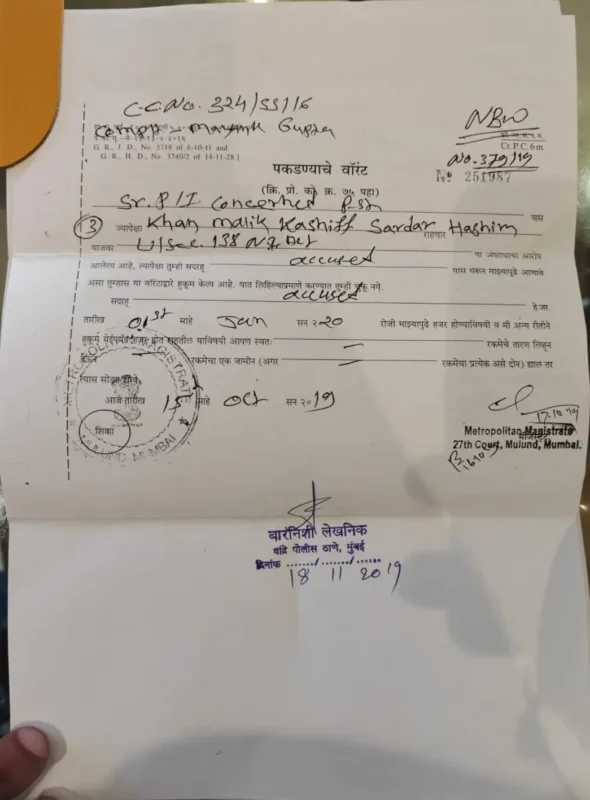 C.C No. 324/SS/16
Compl - Mayank Gupta
G. R., J. D., No. 5718 of 6-10-11 and
G. R., H. D., No. 3740/2 of 14-11-28 ]
NBW
Cr.P.C. 6m.
No. 379/19
No 251987
पकडण्याचे वॉरंट
(क्रि. प्रो. को. क्र. ७५ पहा)
Sr. P/I Concerned P.Stn
यास
(3) ज्यापेक्षा Khan Malik Kashiff Sardar Hashim राहणार
याजवर U/Sec. 138 N.I. Act या अपराधाचा आरोप
आलेला आहे, त्यापेक्षा तुम्ही सदरहू accused यास धरून माझ्यापुढे आणावे
असा तुम्हास या वॉरंटाद्वारे हुकूम केल्या आहे. यात लिहिल्याप्रमाणे करण्यात तुम्ही चुकू नये.
सदरहू accused हे/जर
तारीख 01st माहे Jan सन २०20 रोजी माझ्यापुढे हजर होण्याविषयी व मी अन्य रीतीने
हुकूम देईपर्यंत हजर होत राहतील याविषयी आपण स्वतः रकमेचे तारण लिहून
देऊन रकमेचा एक जामीन (अगर रकमेचा प्रत्येक असे दोन) द्याल तर
त्यास सोडून द्यावे.
आज तारीख 15 माहे Oct सन २०19
शिक्का
METROPOLITAN MAGISTRATE
MULUND MUMBAI
17.10.19
Metropolitan Magistrate
27th Court, Mulund, Mumbai.
16.10
बारनिशी लेखनिक
वांद्रे पोलीस ठाणे, मुंबई
दिनांक ....../......./......
18 11 2019